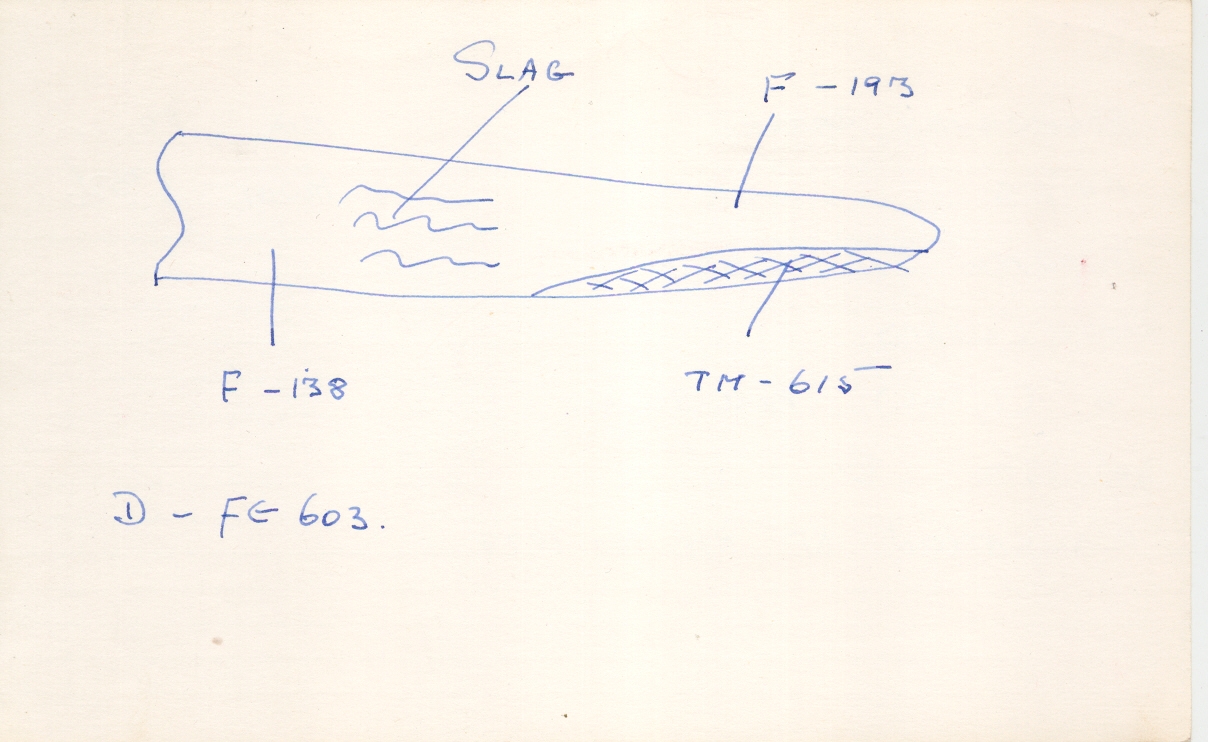 SLAG
F - 193
F - 138
TM - 615
D - FE 603.